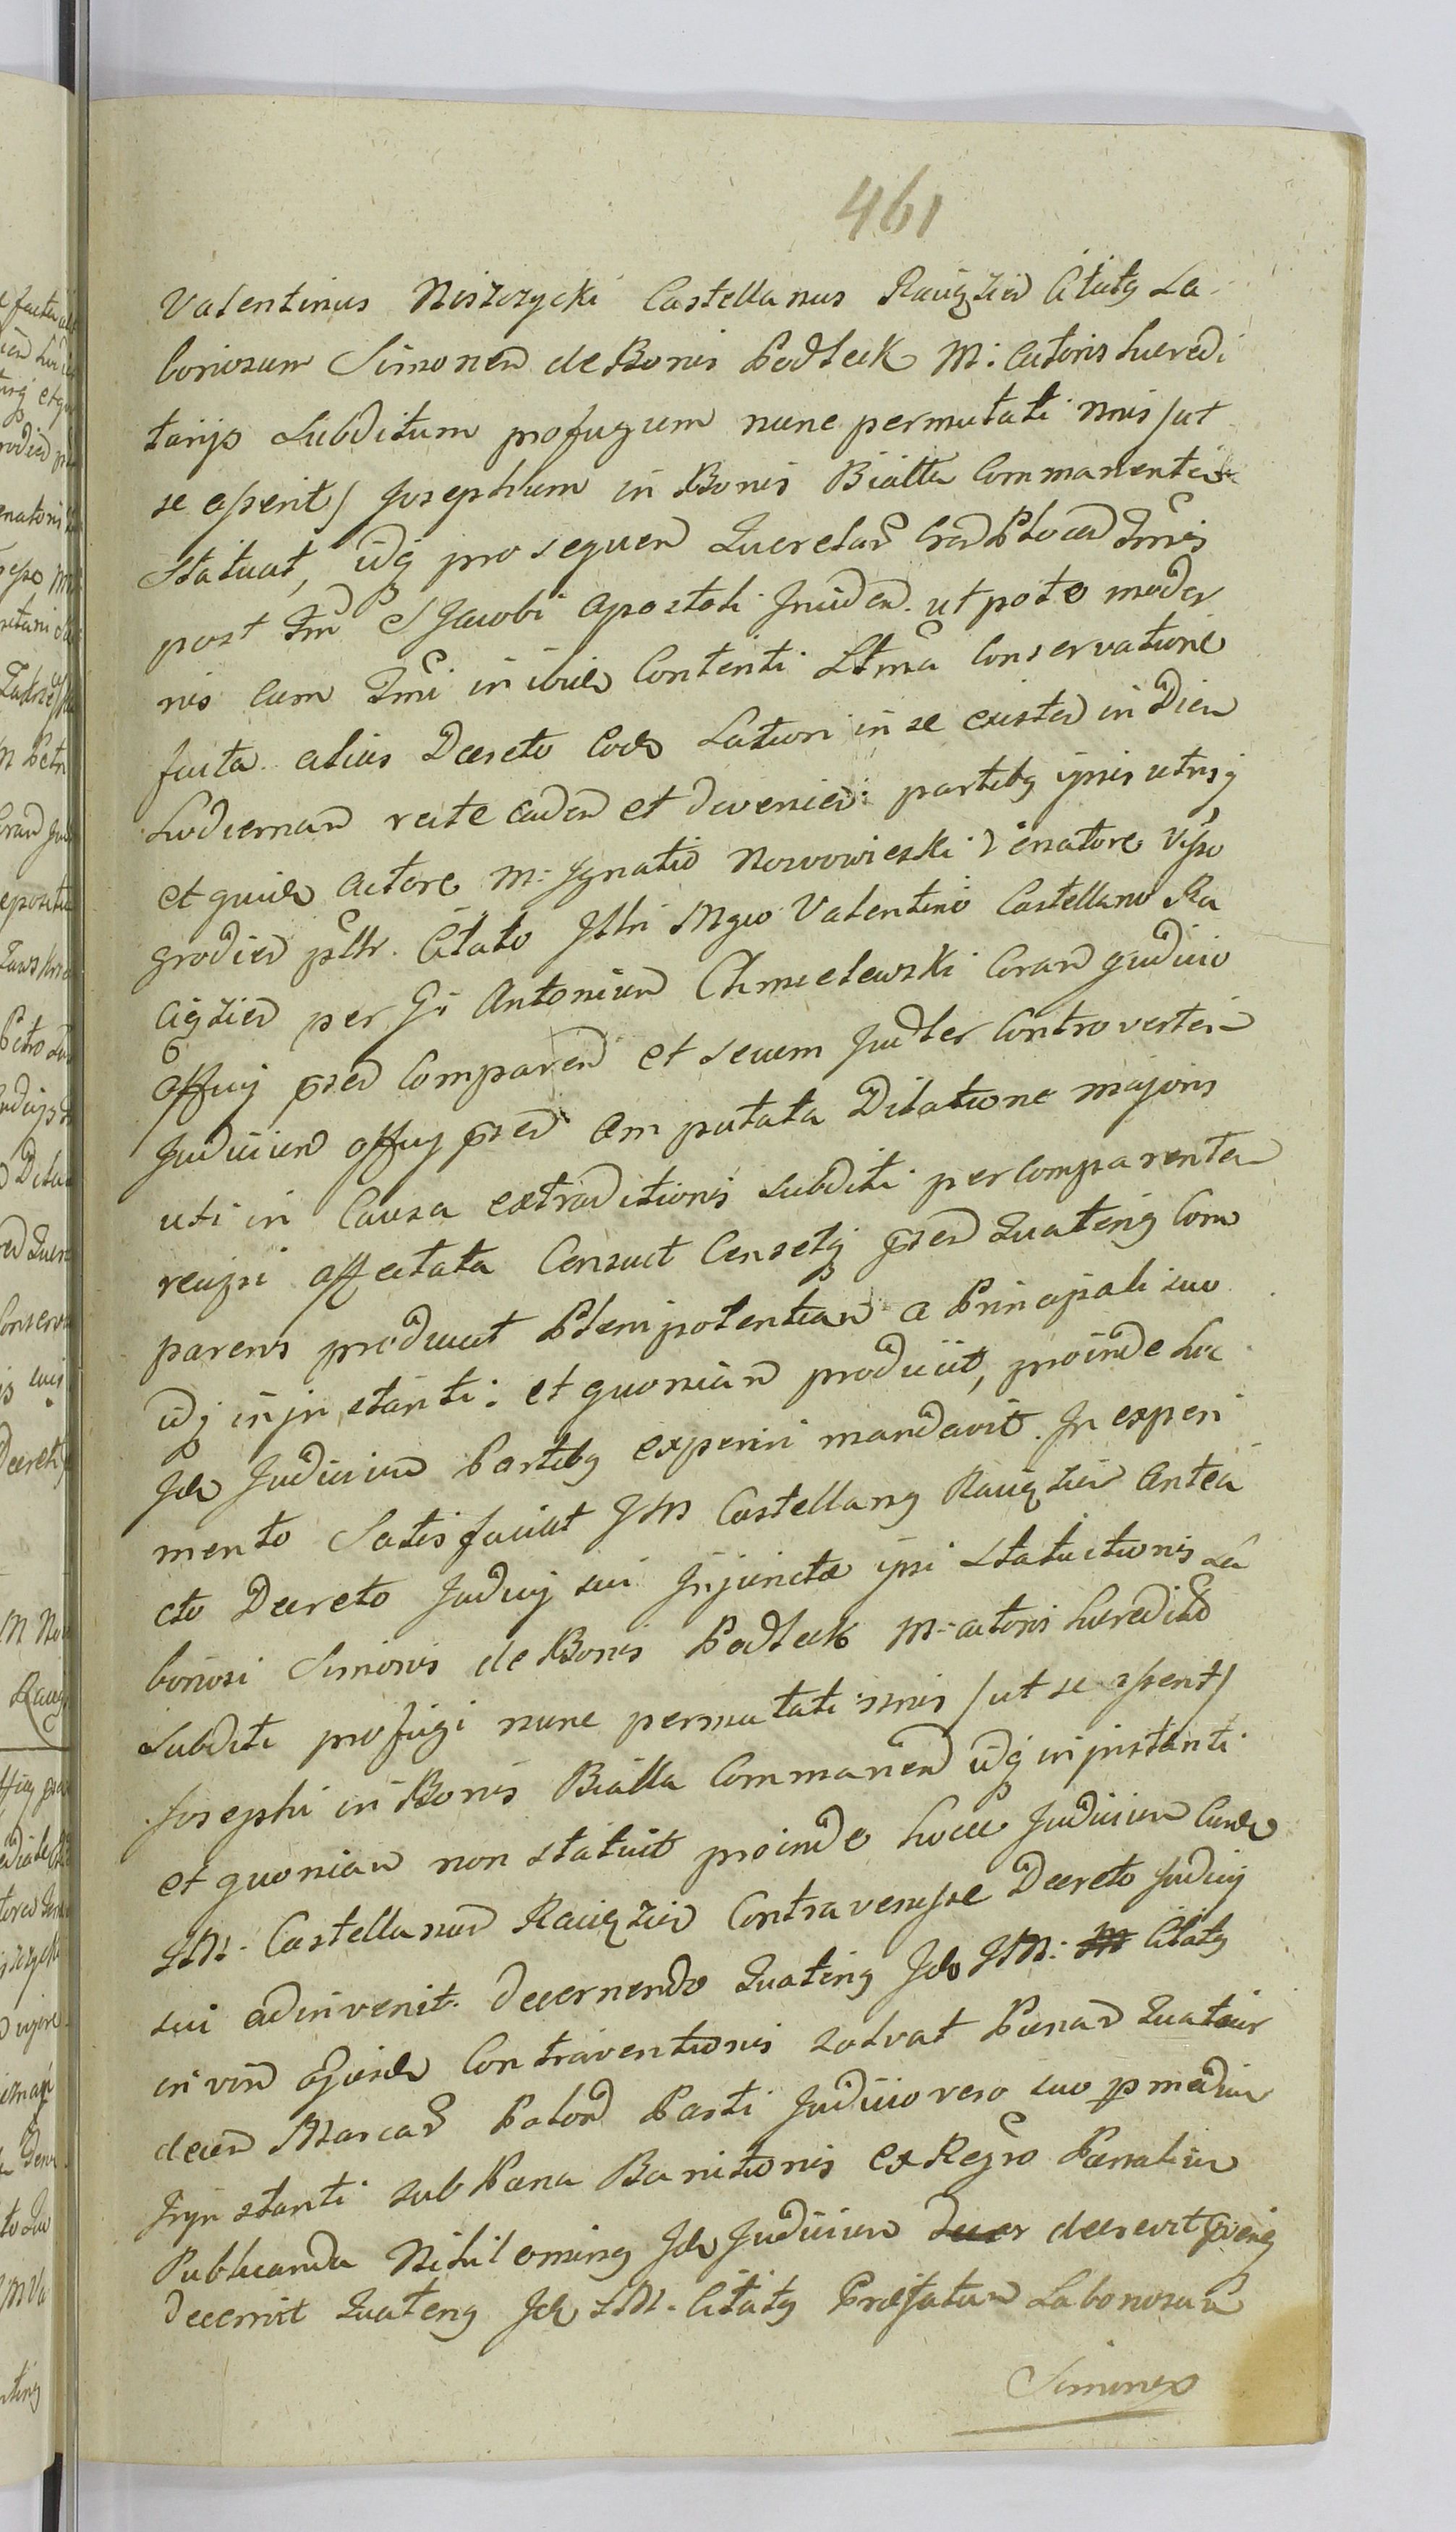 461
Valentinus Niszczycki Castellanus Raciąźien Citatg La
boriosum Simonem de Bonis Podleck M: Actoris heredi
tarijs Subditum profugum nunc permutati nnis /ut
se asserit/ Josephum in Bonis Bialla Commanentem
Statuat, idq pro sequen Querelar Grad Plocen Tmis
post Tm S Jacobi Apostoli Juriden. utpote moder
nis cum Tmi in ibid Contenti Ltma Conservatione
facta alias Decreto eod Latiori in se existen in Diem
Hodiernam recte caden et devenien: partibg ipsis utrisq
et quid Actore M: Ignatio Nowowieski Venatore Visso
grodien pltr. Citato Illri Mgco Valentino Castellano Ra
ciąźien per G: Antonium Chmielewski Coram Judicio
Officij psen Comparen et secum Judler Controverten
Judicium officij psen Amputata Dilatione majoris
uti in Causa extraditionis subditi per Comparentem
reczsi affectata Censuit Censetq psen Quating Com
parens producat Plenipotentiam a Principali suo
idq in instanti: et quoniam produxit, proinde hoc
Id Judicium Partibg experiri mandavit. In experi
mento Satisfaciat JM Castellang Raciąźien Antea
cto Decreto Judicij sui Injunctæ ipsi Statuitionis La
boriosi Simonis de Bonis Podleck M: actoris hereditar
Subditi profugi nunc permutati nnis /ut se asserit/
Josephi in Bonis Bialla Commanen idq in instanti
et quoniam non statuit proinde hocce Judicium eund
JM. Castellanum Raciąźien Contravenisse Decreto Judicij
sui adinvenit. Decernendo Quating Id JM: Citatg
in vim ejusd Contraventionis solvat Pænam Quatuor
decem Marcar Polon Parti Judicio vero suo pmedium
Inin stanti sub Pæna Banitionis ex Regro Pænalium
Publicanda Nihiloming Id Judicium decrevit
Decernit Quateng Id JM. Citatg Præfatum Laboriosum
Simonem